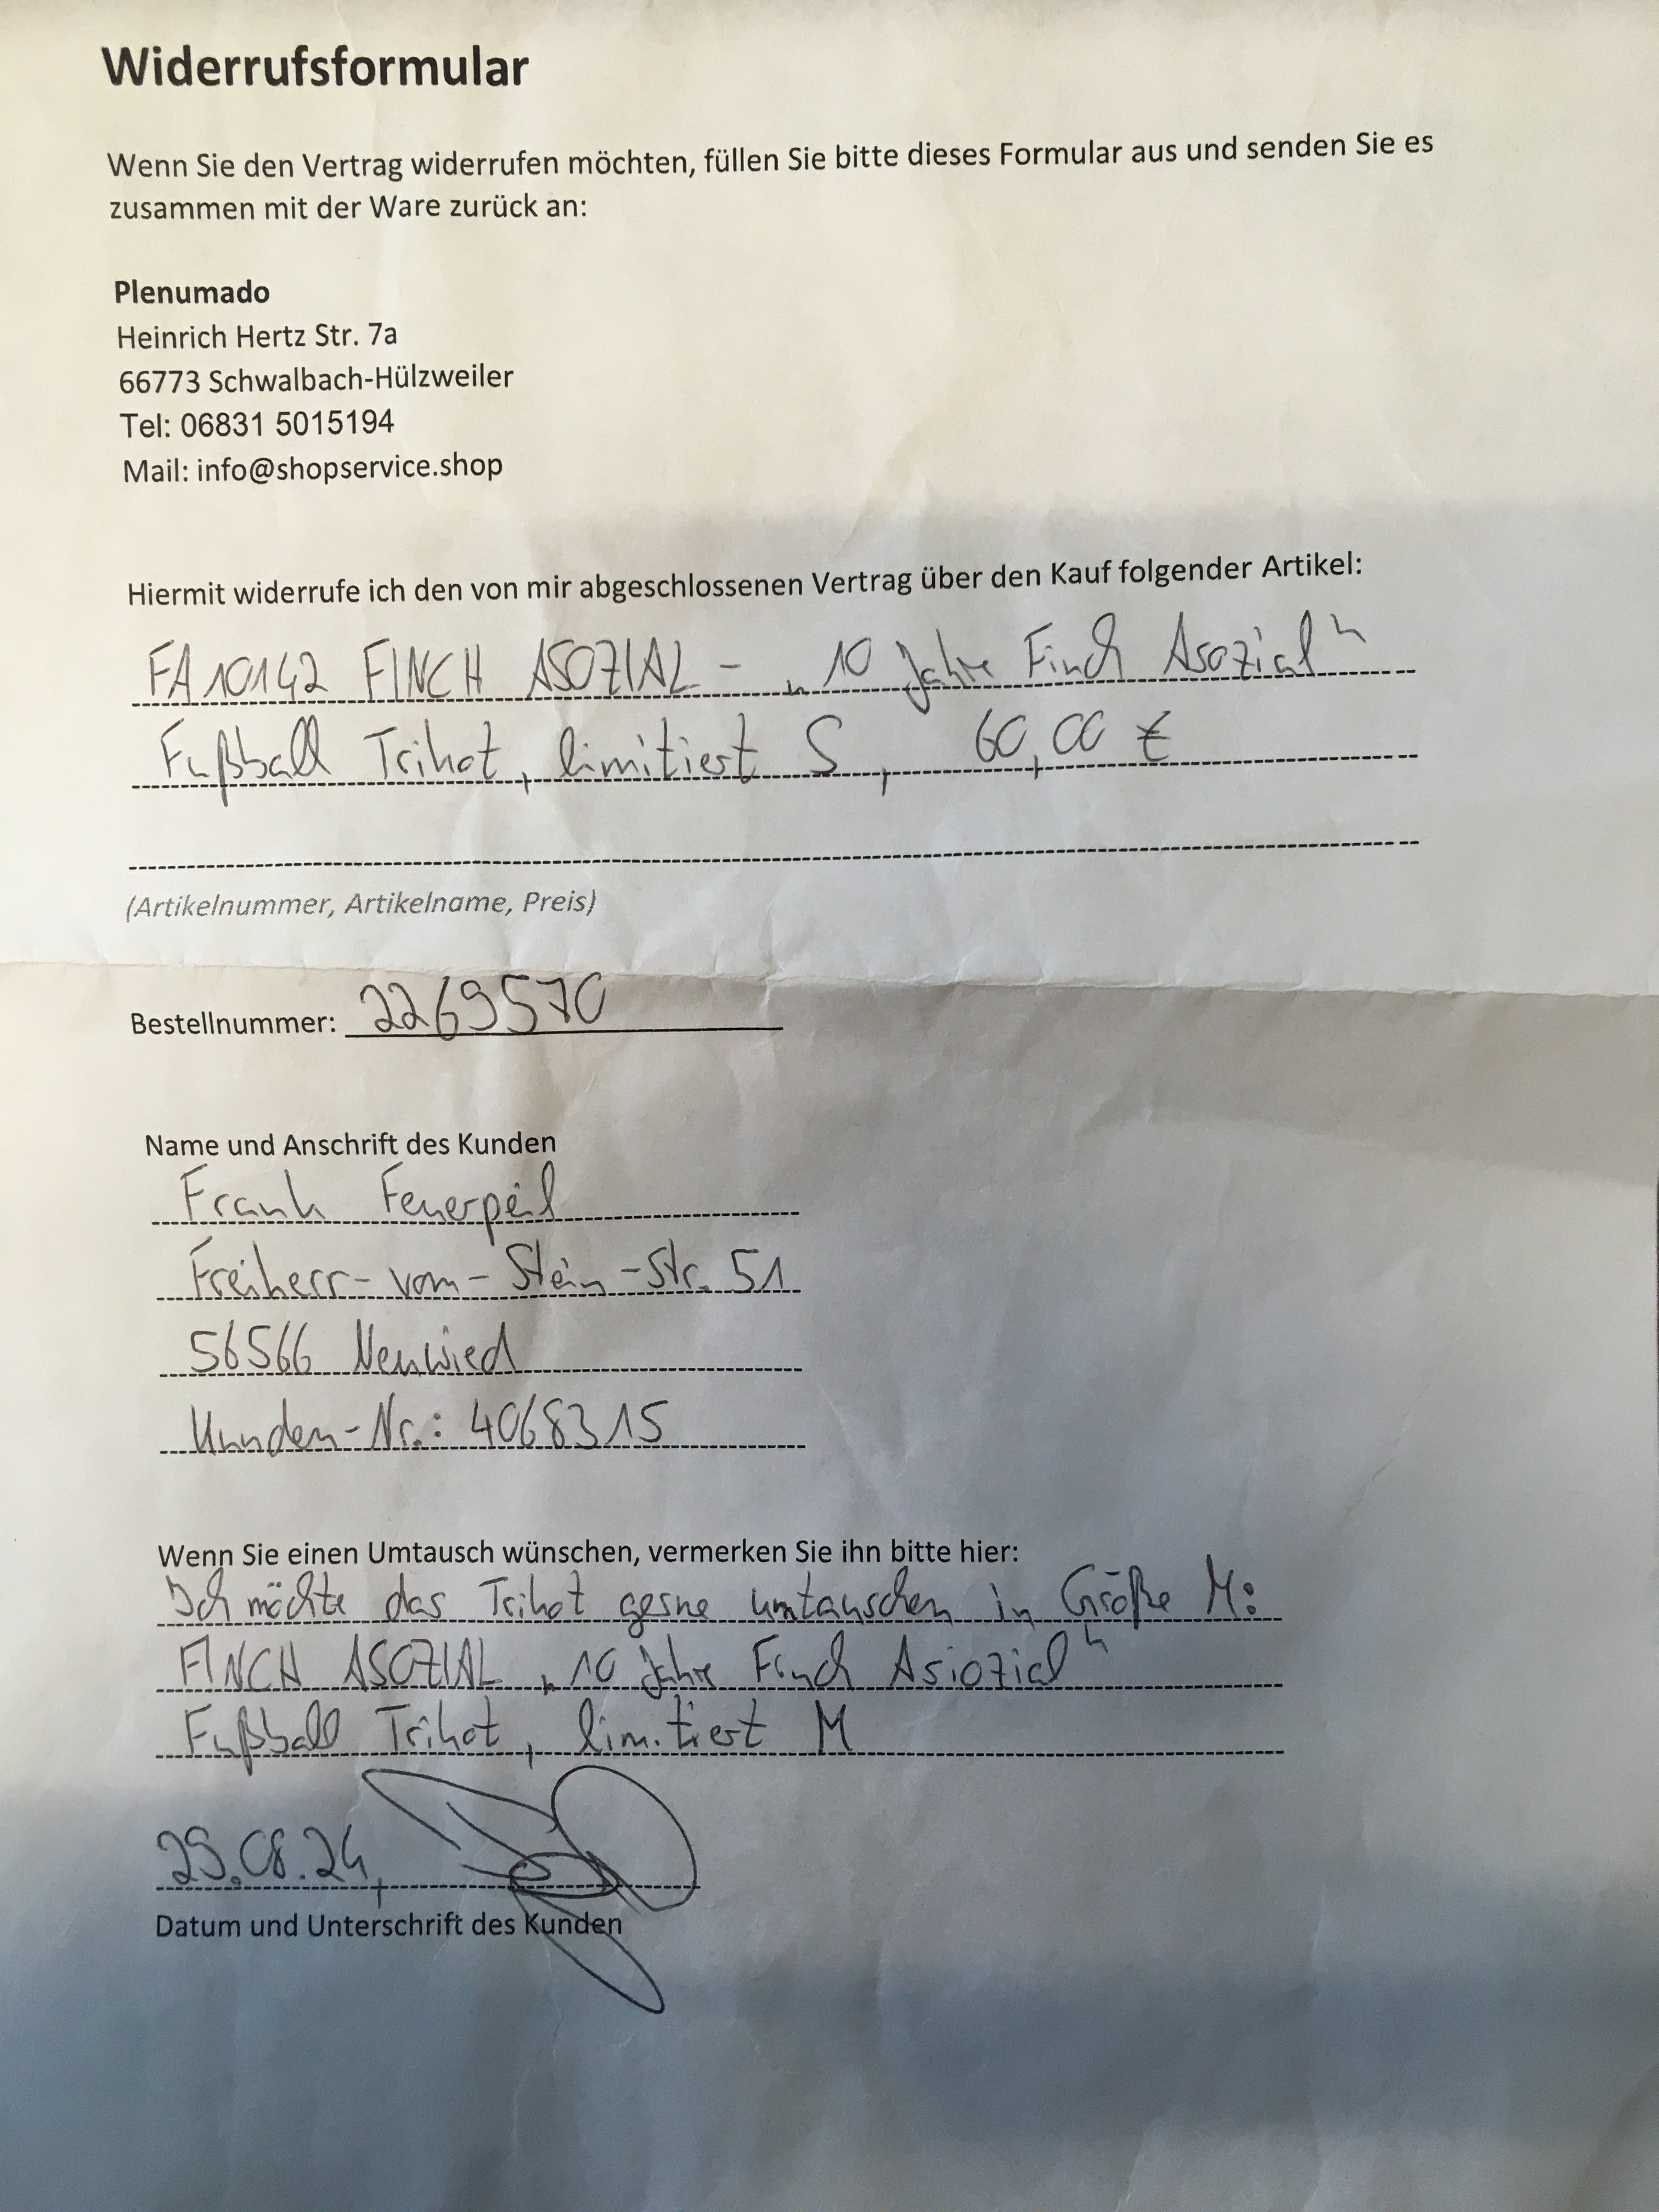 Widerrufsformular
Wenn Sie den Vertrag widerrufen möchten, füllen Sie bitte dieses Formular aus und senden Sie es
zusammen mit der Ware zurück an:
Plenumado
Heinrich Hertz Str. 7a
66773 Schwalbach-Hülzweiler
Tel: 06831 5015194
Mail: info@shopservice.shop
Hiermit widerrufe ich den von mir abgeschlossenen Vertrag über den Kauf folgender Artikel:
FA10142 FINCH ASOZIAL - „10 Jahre Finch Asozial“
Fußball Trikot, limitiert S, 60,00 €
(Artikelnummer, Artikelname, Preis)
Bestellnummer: 2269570
Name und Anschrift des Kunden
Frank Feuerpeil
Freiherr-vom-Stein-Str. 51
56566 Neuwied
Kunden-Nr.: 4068315
Wenn Sie einen Umtausch wünschen, vermerken Sie ihn bitte hier:
Ich möchte das Trikot gerne umtauschen in Größe M:
FINCH ASOZIAL „10 Jahre Finch Asiozial“
Fußball Trikot, limitiert M
29.08.24,
Datum und Unterschrift des Kunden